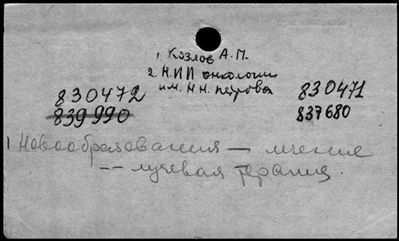 1. Козлов А.П.
2. НИИ онкологии
им. Н.Н. Петрова
830472 830471
839990 837680
1. Новообразования — лечение
— лучевая терапия.